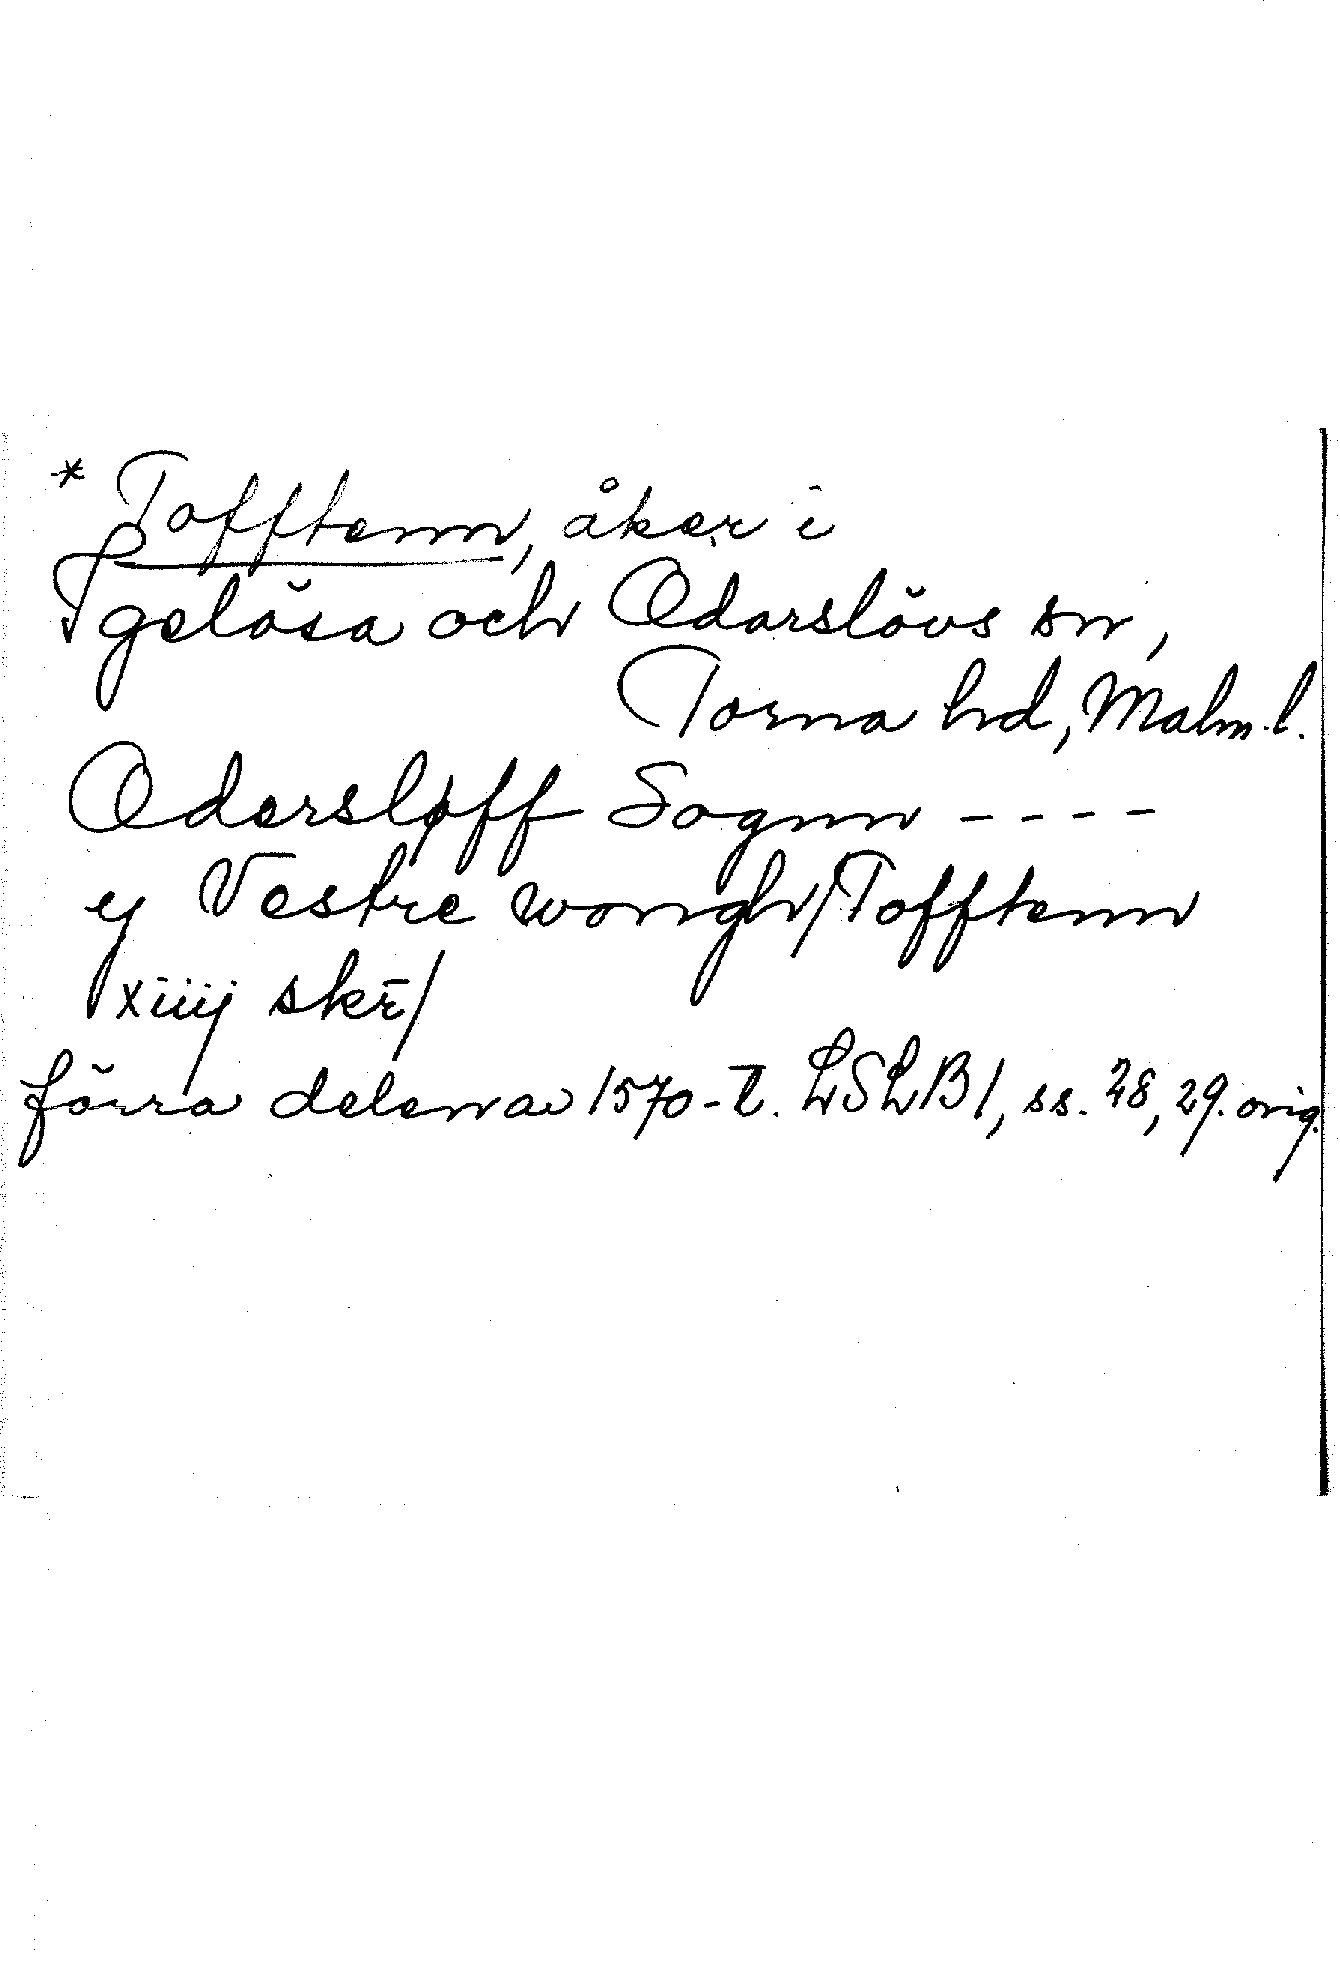 * Tofftenn, åker i
Igelösa och Odarslövs sn,
Torna hd, Malm. l.
Odersløff Sognn ----
ej Vestre wongh/Tofftenn
xiiij skē/
förra delen av 1570-t. LSLB1, ss. 28, 29. orig.